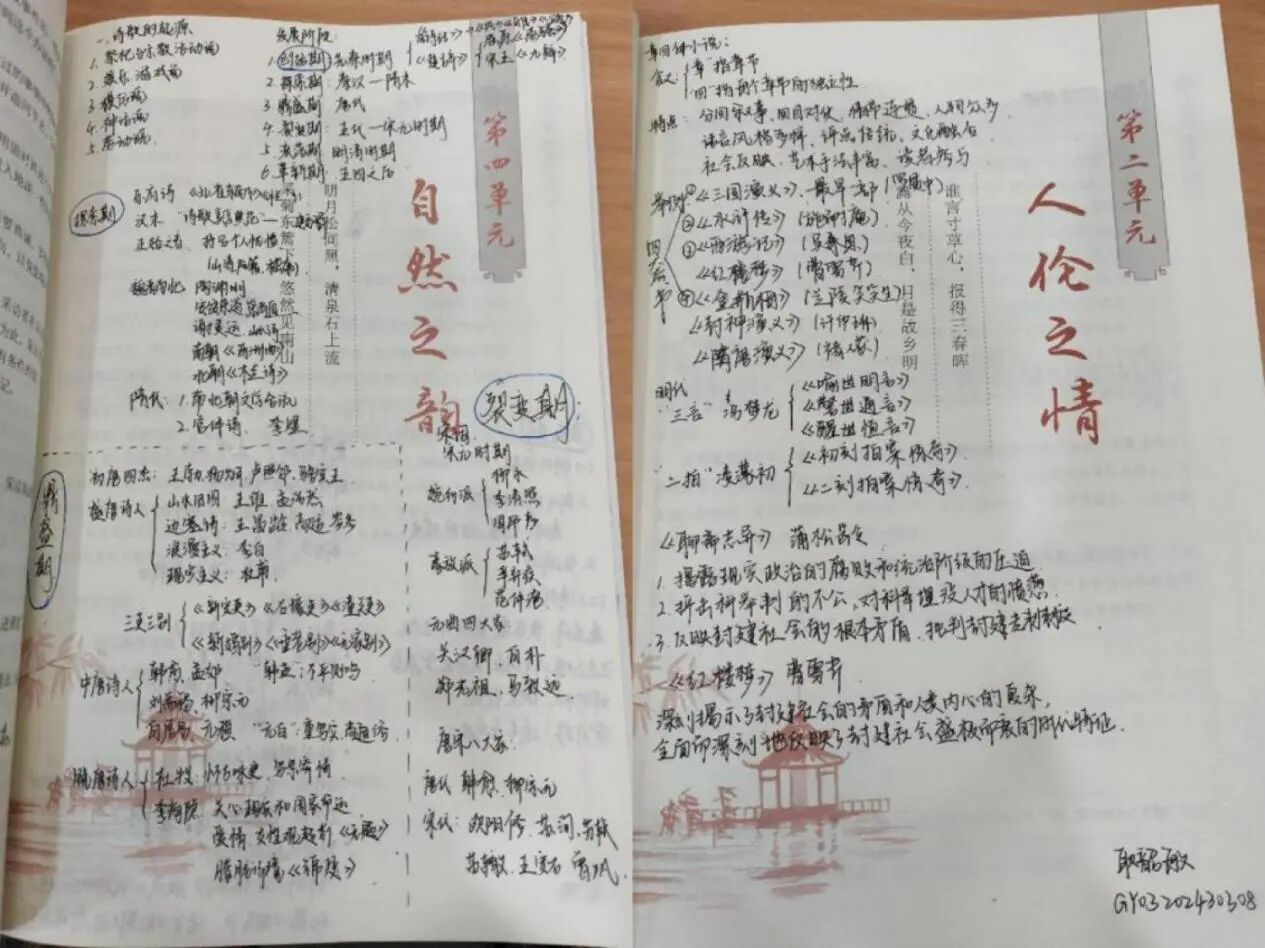 一、诗歌的起源
1. 祭祀与宗教活动说
2. 娱乐游戏说
3. 模仿说
4. 神话说
5. 劳动说
发展阶段:
1. 创始期: 先秦时期
2. 探索期: 秦汉—隋末
3. 鼎盛期: 唐代
4. 裂变期: 五代—宋元时期
5. 衰落期 明清时期
6. 革新期: 五四之后
《楚辞》
屈原《离骚》
宋玉《九辩》
第四单元
自然之韵
明月松间照,清泉石上流
采菊东篱下,悠然见南山
探索期
乐府诗
汉末
正始之音 抒写个人忧愤
陶渊明
谢灵运 山水诗
南朝《西洲曲》
北朝《木兰诗》
隋代: 1. 南北朝文学合流
2. 宫体诗
裂变期
宋词
宋元时期
婉约派
柳永
李清照
周邦彦
豪放派
苏轼
辛弃疾
范仲淹
元曲四大家
关汉卿 白朴
郑光祖、马致远
唐宋八大家
唐代 韩愈、柳宗元
宋代: 欧阳修、苏洵、苏轼
苏辙、王安石、曾巩
鼎盛期
初唐四杰: 王勃、杨炯、卢照邻、骆宾王
盛唐诗人
山水田园: 王维 孟浩然
边塞诗: 王昌龄 高适 岑参
浪漫主义: 李白
现实主义: 杜甫
三吏三别
《新安吏》《石壕吏》《潼关吏》
《新婚别》《垂老别》《无家别》
中唐诗人
韩愈 孟郊 "韩孟": 不平则鸣
刘禹锡 柳宗元
白居易、元稹 "元白": 重写实 尚通俗
晚唐诗人:
杜牧:
李商隐: 关心现实和国家命运
爱情 《无题》
朦胧 《锦瑟》
第二单元
人伦之情
谁言寸草心,报得三春晖
露从今夜白,月是故乡明
章回体小说:
含义: "章"指章节
"回"指每个章节的独立性
特点: 分回叙事、回目对仗、情节连贯、人物众多
语言风格多样、评点传统、文化融合
社会反映、艺术手法丰富、读者参与
举例:
四名著
①《三国演义》、最早一部(罗贯中)
②《水浒传》(施耐庵)
③《西游记》(吴承恩)
《红楼梦》(曹雪芹)
④《金瓶梅》(兰陵笑笑生)
《封神演义》(许仲琳)
《隋唐演义》(褚人获)
明代
"三言" 冯梦龙
《喻世明言》
《警世通言》
《醒世恒言》
"二拍" 凌濛初
《初刻拍案惊奇》
《二刻拍案惊奇》.
《聊斋志异》 蒲松龄
1. 揭露现实政治的腐败和统治阶级的压迫
2. 抨击科举制的不公,对科举埋没人才的愤怒
3. 反映封建社会的根本矛盾,批判封建专制制度
《红楼梦》 曹雪芹
深刻揭示了封建社会的矛盾和人类内心的复杂,
全面而深刻地反映了封建社会盛极而衰的时代特征.
GY03202430308